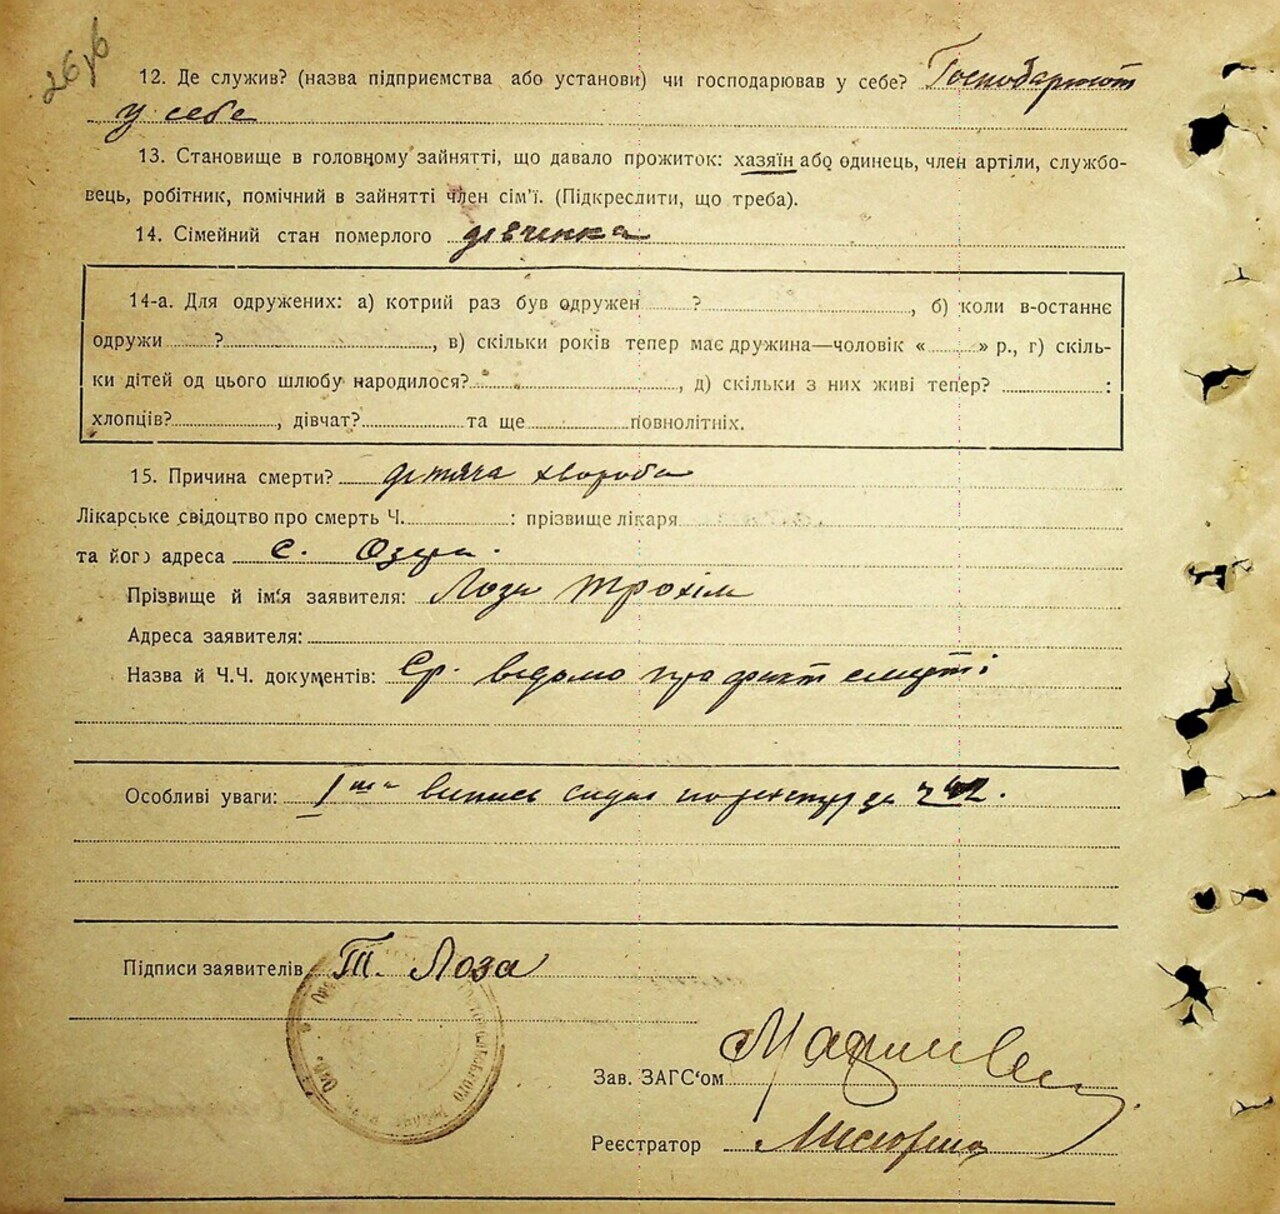 12. Де служив? (назва підприємства або установи) чи господарював у себе? Господарюют
у себе
13. Становище в головному зайнятті, що давало прожиток: хазяїн або одинець, член артіли, службо-
вець, робітник, помічний в зайнятті член сім'ї. (Підкреслити, що треба).
14. Сімейний стан померлого дівчинка
14-а. Для одружених: а) котрий раз був одружен ? , б) коли в-останнє
одружи ? , в) скільки років тепер має дружина—чоловік « » р., г) скіль-
ки дітей од цього шлюбу народилося? , д) скільки з них живі тепер? :
хлопців? , дівчат? та ще повнолітніх.
15. Причина смерті? дитяча хвороба
Лікарське свідоцтво про смерть Ч. : прізвище лікаря
та його адреса с.
Прізвище й ім'я заявителя: Лоза Трохім
Адреса заявителя:
Назва й Ч.Ч. документів: відомо про факт смерті
Особливі уваги: випись
Підписи заявителів Т. Лоза
Зав. ЗАГС'ом
Реєстратор